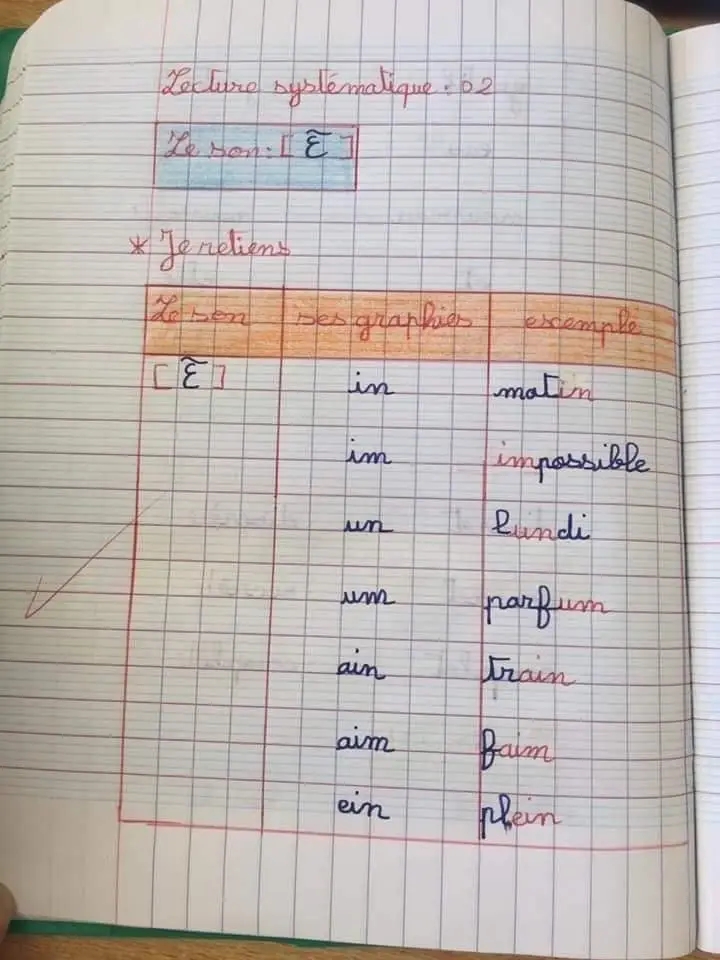 Lecture systématique : 02
Le son : [ ɛ̃ ]
* Je retiens
Le son ses graphies exemple
[ ɛ̃ ] in matin
im impossible
un lundi
um parfum
ain train
aim faim
ein plein